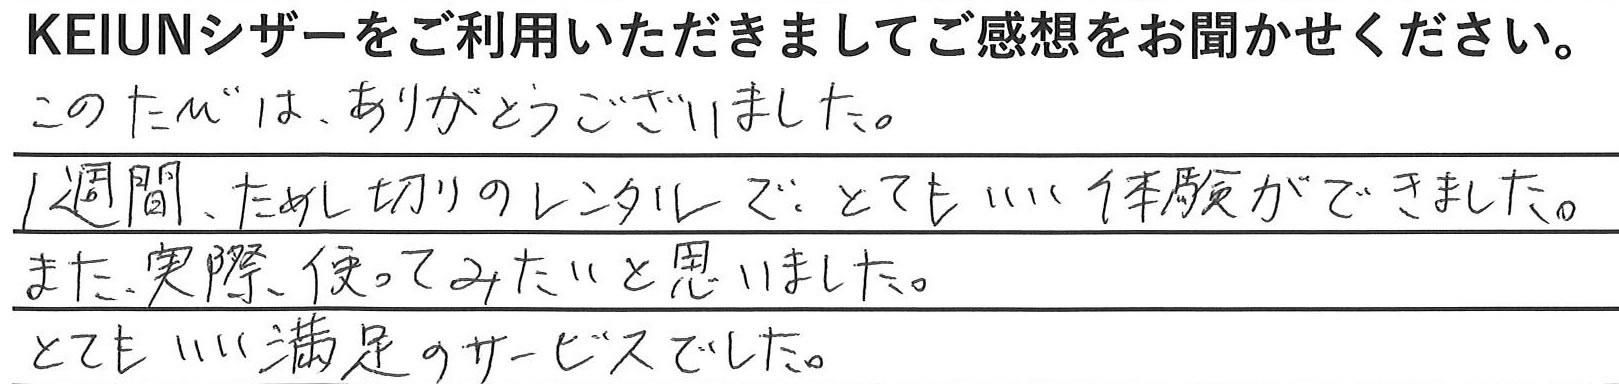 KEIUNシザーをご利用いただきましてご感想をお聞かせください。
このたびは、ありがとうございました。
1週間、ためし切りのレンタルで、とてもいい体験ができました。
また、実際、使ってみたいと思いました。
とてもいい満足のサービスでした。